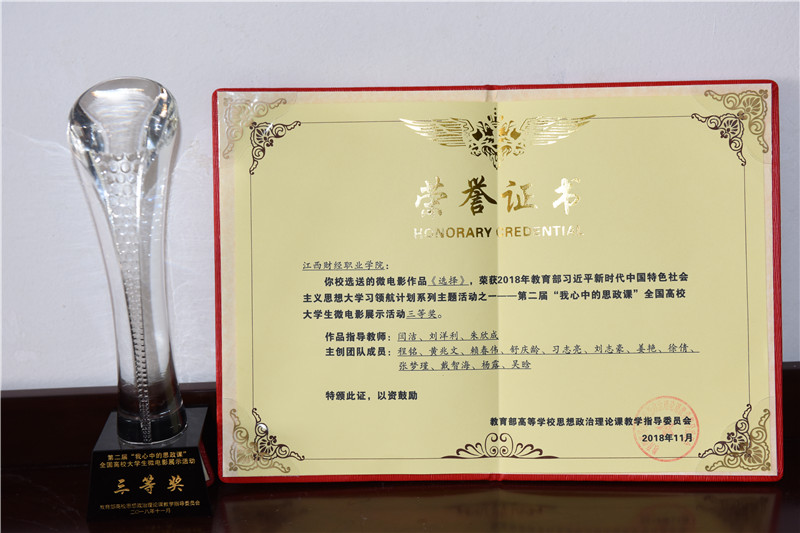 荣誉证书
HONORARY CREDENTIAL
江西财经职业学院：
你校选送的微电影作品《选择》，荣获2018年教育部习近平新时代中国特色社会
主义思想大学习领航计划系列主题活动之一——第二届“我心中的思政课”全国高校
大学生微电影展示活动三等奖。
作品指导教师：闫洁、刘洋利、朱欣成
主创团队成员：程铭、黄兆文、赖春伟、舒庆龄、习志亮、刘志豪、姜艳、徐倩、
张梦瑾、戴智海、杨露、吴晗
特颁此证，以资鼓励
教育部高等学校思想政治理论课教学指导委员会
2018年11月
第二届“我心中的思政课”
全国高校大学生微电影展示活动
三等奖
教育部高校思想政治理论课教学指导委员会
二〇一八年十一月